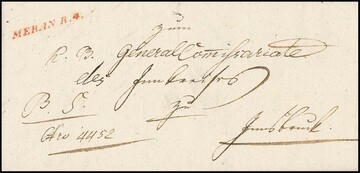 MERAN R.4.
zum
K. B. General Comissariate
des Innkreises
B. S. zu
Nro 4452
Innsbruck.